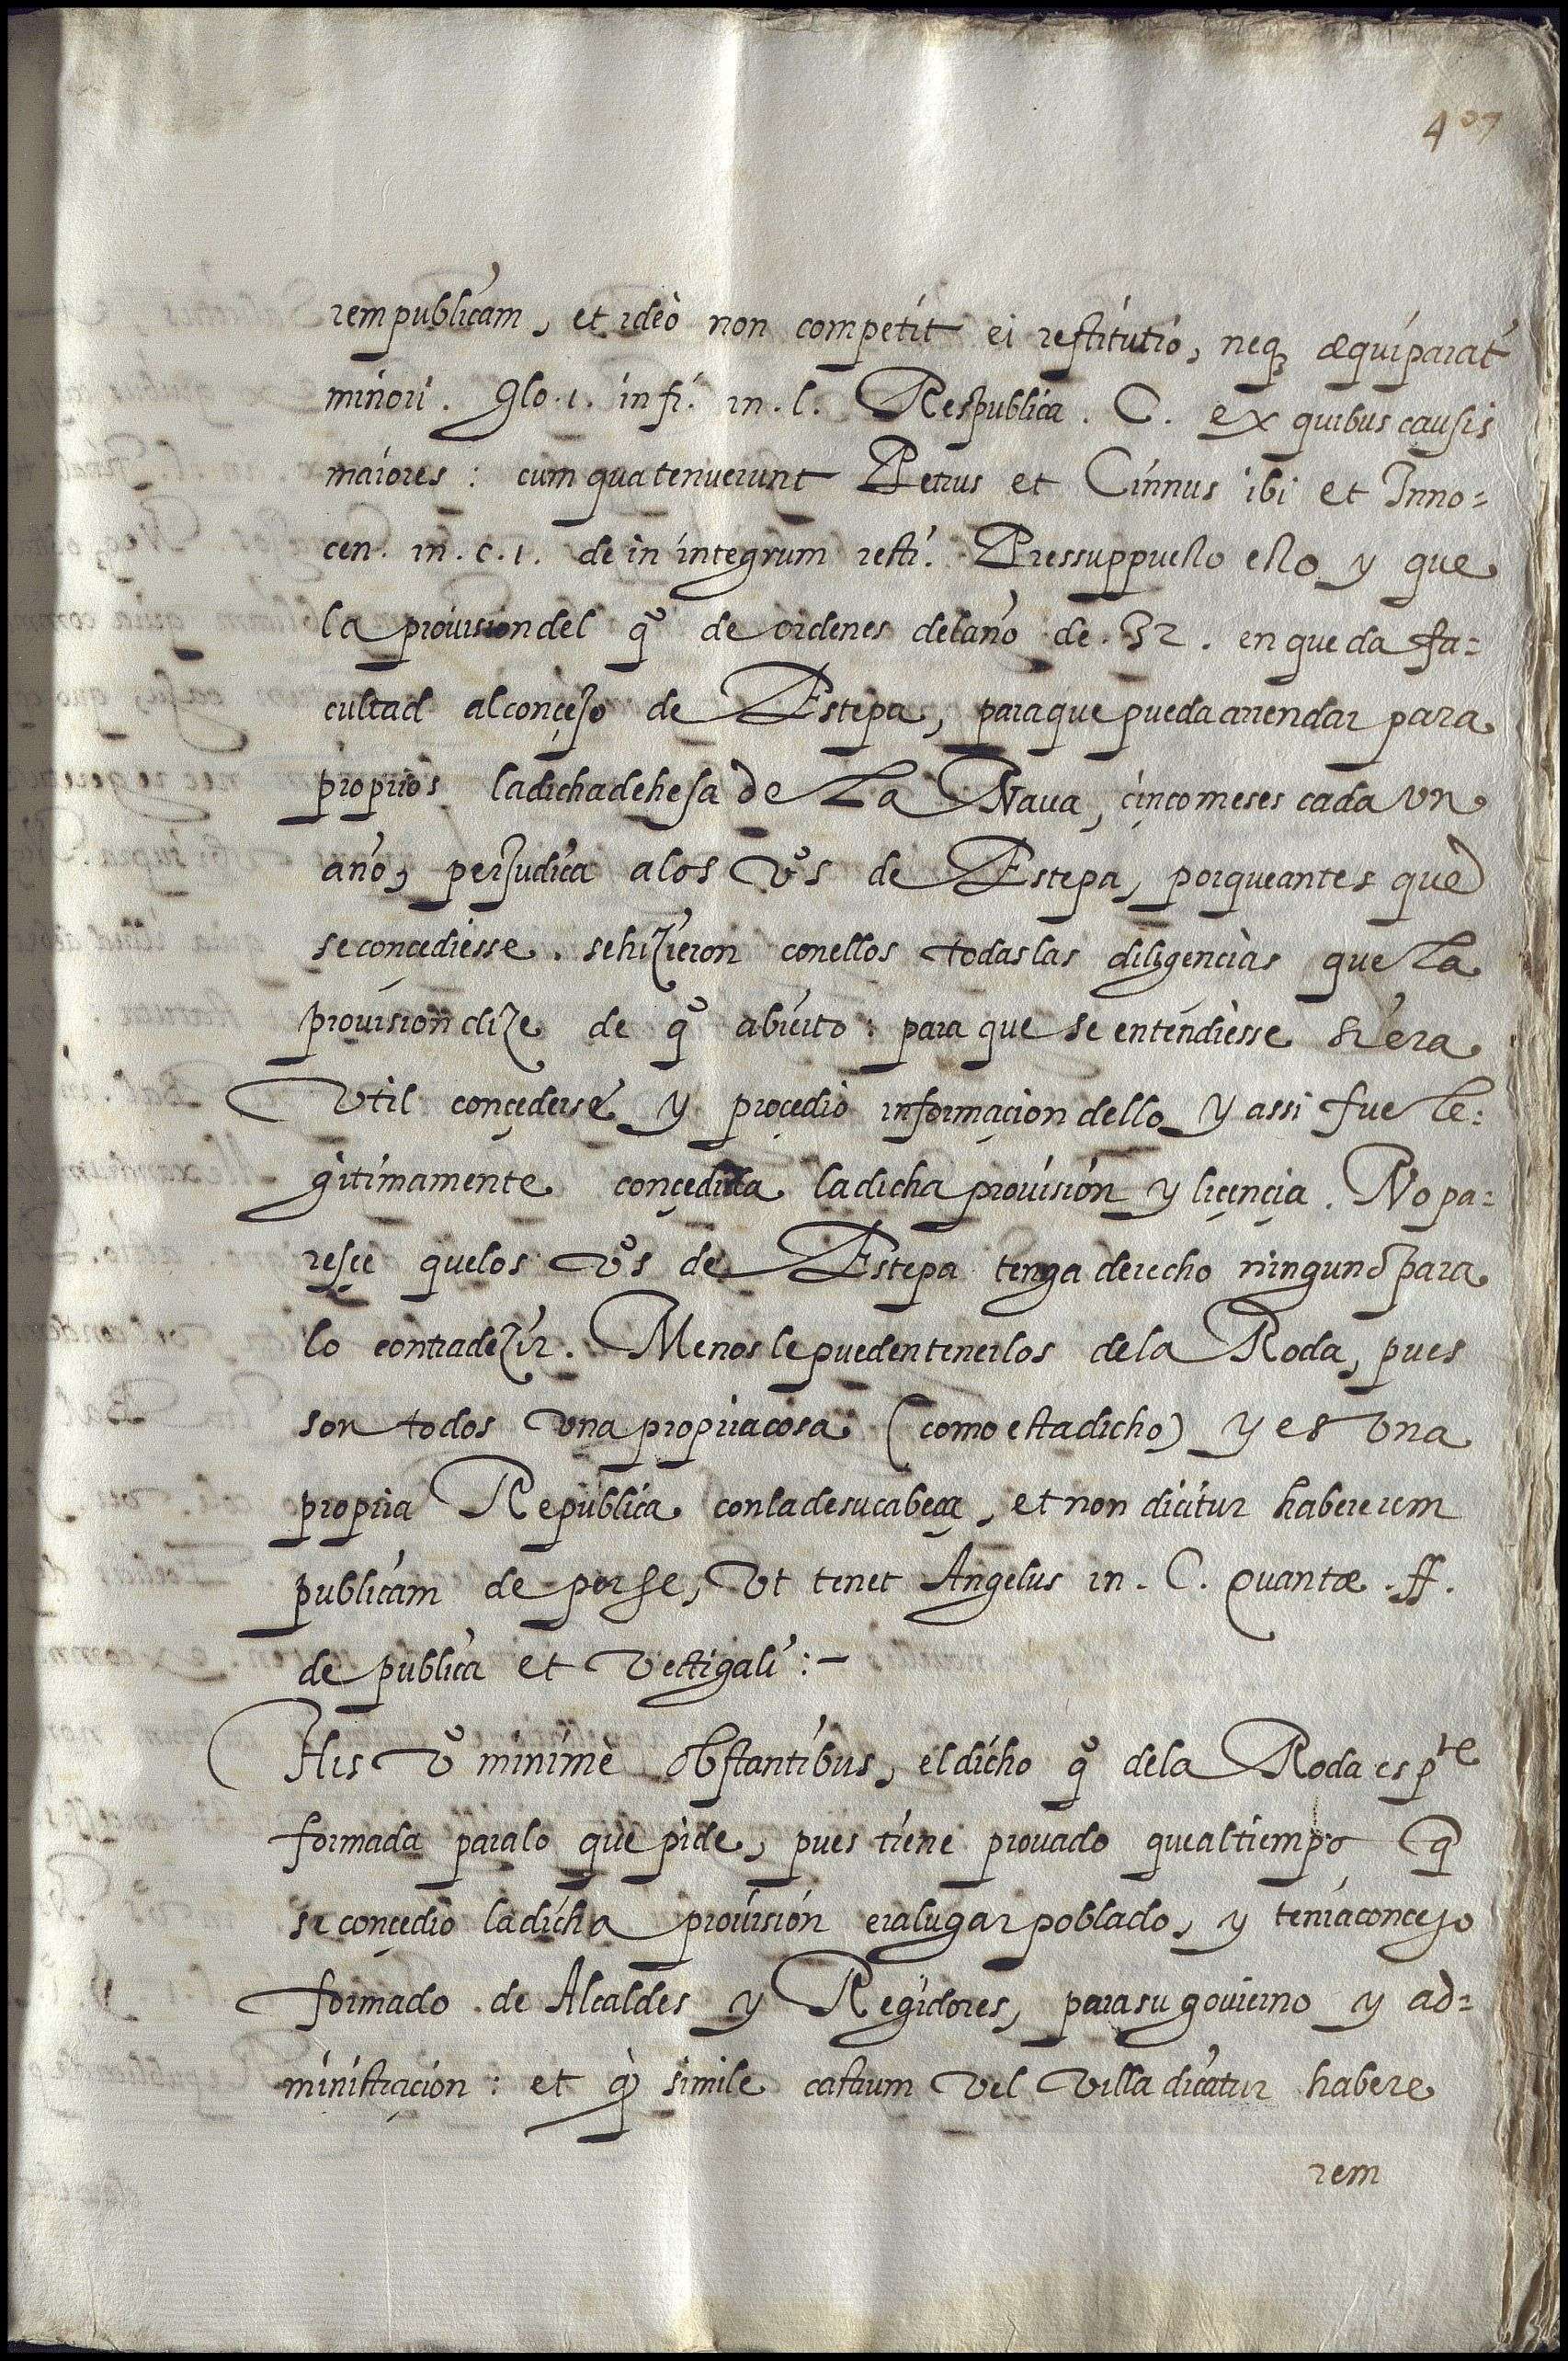 407
rempublicam, et ideò non competit ei restitutio, neq; æquiparat
minori. Glo. 1. in fi. in. l. Respublica. C. ex quibus causis
maiores: cum qua tenuerunt Petrus et Cinnus ibi et Inno=
cen. in. c. 1. de in integrum resti. Pressuppuesto esto y que
la prouision del q.º de ordenes del año de. 32. en que da fa=
cultad al conçejo de Estepa, para que pueda arrendar para
proprios la dicha dehesa de La Naua, çinco meses cada vn
año, perjudica a los v.ºs de Estepa, porque antes que
se concediesse. se hizieron con ellos todas las diligencias que La
prouision dize de q.º abierto: para que se entendiesse si era
Vtil conçederse y proçedio informaçion dello y assi fue le=
gitimamente conçedida la dicha prouision y liçençia. No pa=
resçe que los v.ºs de Estepa tenga derecho ninguno para
lo contradezir. Menos le pueden tener los de la Roda, pues
son todos vna propria cosa (como esta dicho) y es vna
propria Republica con la de su cabeça, et non dicitur habere rem
publicam de per se, Vt tenet Angelus in. C. Quantæ. ff.
de publica et Vectigali:-
His v.º minimè obstantibus, el dicho q.º de la Roda es p.te
formada para lo que pide, pues tiene prouado que al tiempo q
se conçedio la dicha prouision era lugar poblado, y tenia concejo
formado de Alcaldes y Regidores, para su gouierno y ad=
ministraçion: et q simile castrum vel villa dicatur habere
rem